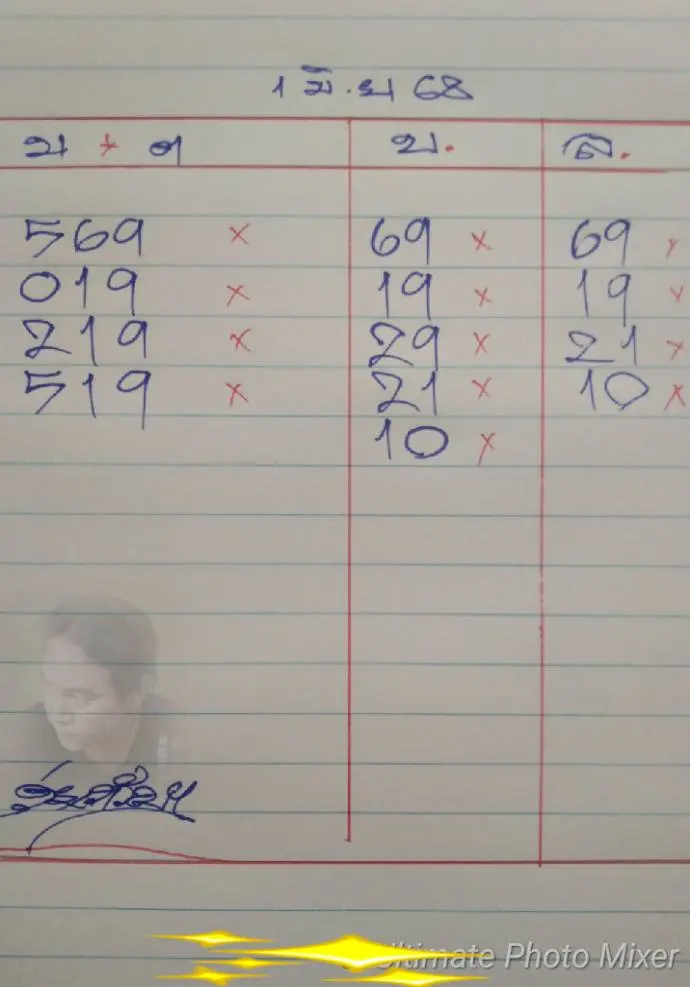 1 มิ.ย 68
บ + ต บ. ล.
569 × 69 × 69 ×
019 × 19 × 19 ×
219 × 29 × 21 ×
519 × 21 × 10 ×
10 ×
Ultimate Photo Mixer